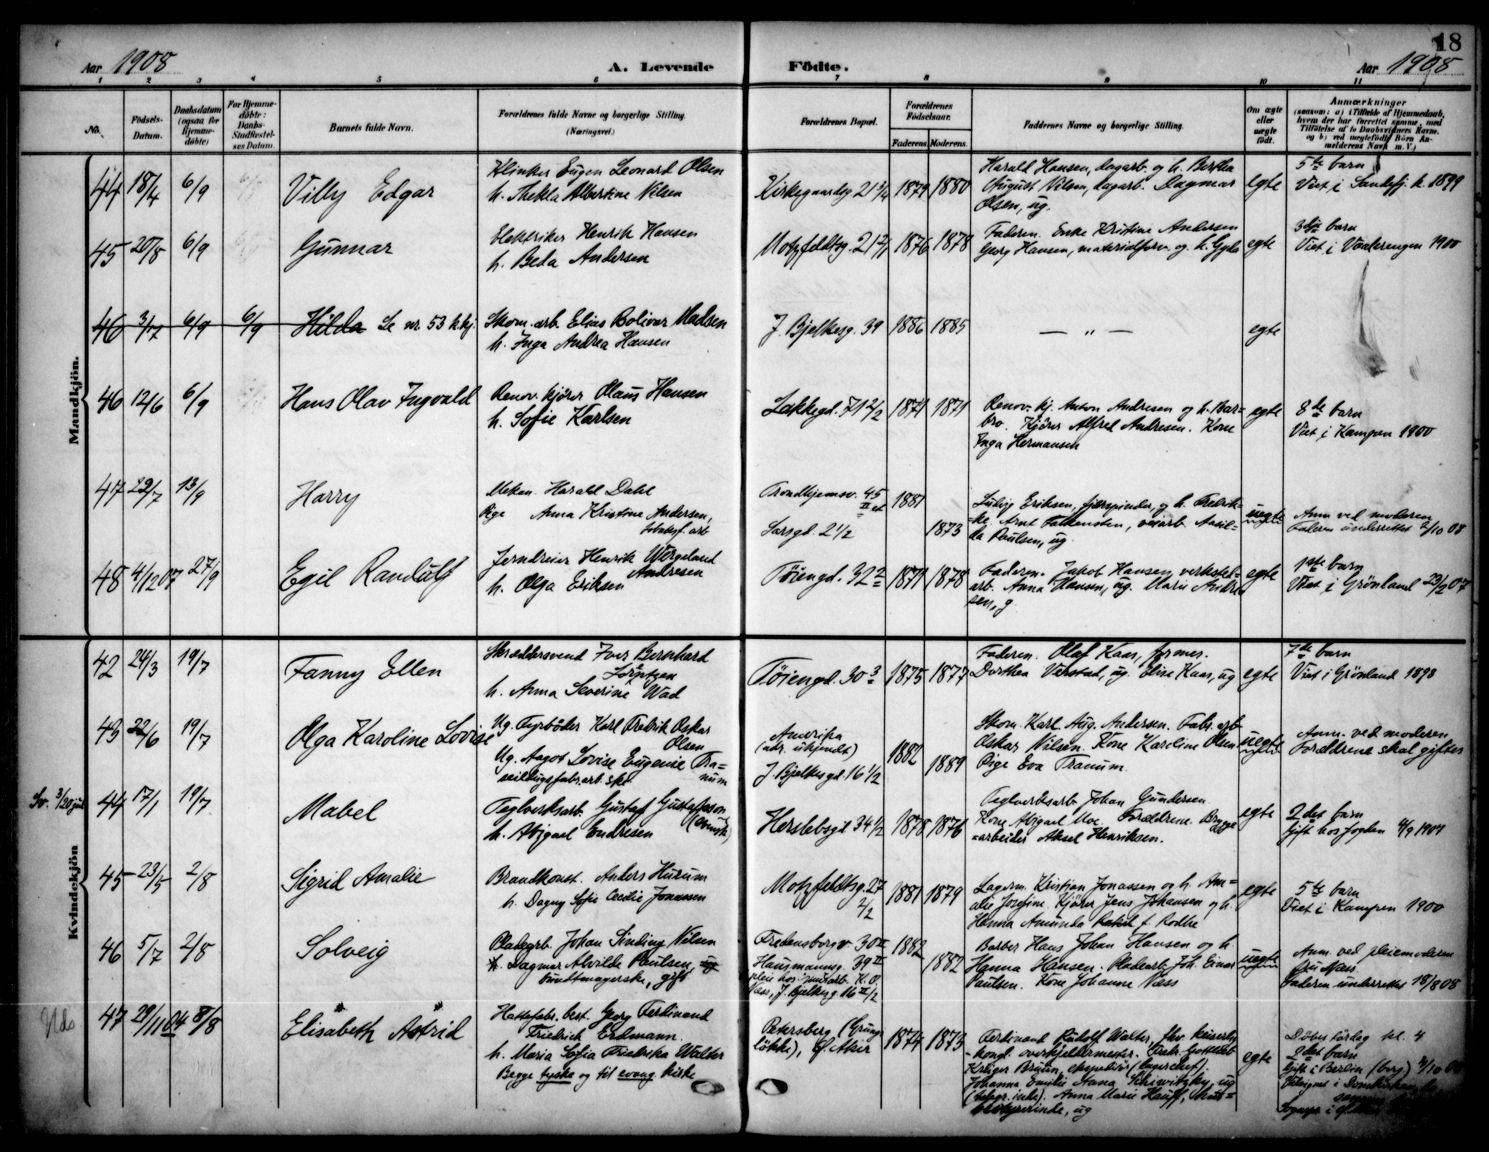 18
Aar 1908 A. Levende Fødte. Aar 1908
1 2 3 4 5 6 7 8 9 10 11
No.
Fødsels-Datum.
Daabsdatum (ogsaa for Hjemme-døbte)
For Hjemme-døbte: Daabs-Stadfæstel-ses Datum.
Barnets fulde Navn.
Forældrenes fulde Navne og borgerlige Stilling (Næringsvei.)
Forældrenes Bopæl.
Forældrenes Fødselsaar.
Faderens. Moderens.
Fadderenes Navne og borgerlig Stilling.
Om ægte eller uægte født.
Anmærkninger
Mandkjøn.
44 18/4 6/9 Villy Edgar
Klinker Eugen Leonard Olsen
h. Thekla Albertine Nilsen
Kirkegaardsg. 21 3/4 1879 1880
Harald Hansen, dagarb. og h. Bertha
August Nilsen, dagarb. Dagmar
Olsen, ug.
egte
5te barn
Viet i Sandefj. k. 1899
45 20/8 6/9 Gunnar
Elektriker Henrik Hansen
h. Beda Andersen
Motzfeldtsg. 21 1876 1878
Faderen. Enke Kristine Andersen
Georg Hansen, materialforv. og h. Gyda
egte
3die barn
Viet i Vaalerengen 1900
46 6/9 6/9 Hilda Se nr. 53 k.kj.
Skom. arb. Elias Bolivar Madsen
h. Inga Andrea Hansen
J. Bjelkesg. 39 1886 1885
— " —
egte
46 12/6 6/9 Hans Olav Ingvald
Renov. kjører Olaus Hansen
h. Sofie Karlsen
Lakkegd. 71 2/2 1871 1871
Renov. kj. Anton Andresen og h. Bar=
bro. Kjører Alfred Andresen. Kone
Inga Hermansen
egte
8de barn
Viet i Kampen 1900
47 22/7 13/9 Harry
Mekan. Harald Dahl
Pige Anna Kristine Andersen,
Trondhjemsv. 45 1881
Sarsgd. 2 1/2 1873
Ludvig Eriksen, og h. Fredrik-
ke. Arnt Falkensten, veiarb. Aasil-
da Paulsen, ug.
uegte
Anm. ved moderen
Faderen underrettet 2/10 08
48 4/12 07 27/9 Egil Randulf
Jerndreier Henrik Wergeland
Andresen
h. Olga Eriksen
Tøiengd. 32 2 1871 1878
Faderen. Jakob Hansen, verksted-
arb. Anna Hansen, ug. Marie Andre-
sen, g.
egte
1ste barn
Viet i Grønland 23/2 07
Kvindekjøn
42 24/3 19/7 Fanny Ellen
Skræddersvend Iver Bernhard
h. Anna Severine Wad
Tøiengd. 30 3 1875 1877
Faderen. Olaf Kaas, former.
Dorthea Verstad, ug. Elise Kaas, ug
egte
7de barn
Viet i Grønland 1898
43 22/6 19/7 Olga Karoline Lovise
Ug. Fyrbøder Karl Fredrik Oskar
Olsen
Ug. Aagot Lovise Eugenie Tra=
num
Amerika
(adr. ukjendt) 1882
J. Bjelkesgd. 16 1/2 1889
Skom. Karl Aug. Andersen. Fabr. arb
Oskar Nilsen. Kone Karoline Olsen
Pige Eva Tranum.
uegte
Anm. ved moderen
Forældrene skal giftes
44 17/1 19/7 Mabel
Teglverksarb. Gustaf Gustafsson
(svensk)
h. Abigael Endresen
Herslebsgd 34 1/2 1878 1876
Teglverksarb. Johan Gundersen
Kone Abigael Moe. Forældrene. Brygge
=arbeider Aksel Henriksen.
egte
2det barn
Gift hos fogden 4/9 1907
45 23/5 2/8 Sigrid Amalie
Brandkonst. Anders Hurum
h. Dagny Sofie Cecilie Jonassen
Motzfeldtsg. 27
2/2 1881 1879
Lagerm. Kristian Jonassen og h. Am=
alie Josefine. Kjører Jens Johansen og h
Hanna Amunda f. Rodhe
egte
5te barn
Viet i Kampen 1900
46 5/7 2/8 Solveig
Pladearb. Johan Sinding Nilsen
Dagmar Alvilde Paulsen,
gift
Fredensborgv. 30 II 1882
Hausmannsg. 39 II 1882
Næss, J. Bjelkesg 16 II/2
Barber Hans Johan Hansen og h.
Hanna Hansen. Pladearb. Joh. Einar
Paulsen. Kone Johanne Næss
uegte
Anm. ved pleiemoderen
Fru Næss.
Faderen underrettet 18/8 08
47 29/11 04 8/8 Elisabeth Astrid
Hattefabr. best. Georg Ferdinand
Friedrich Erdmann.
h. Maria Sofia Fredrika Walter
Begge tyske og til evang. kirke
Petersberg (Grüner-
løkke), Ø. Aker 1874 1873
Ferdinand Rudolf Walter,
overkjeldermester.
Johanna Emilie Anna
Anna Marie Hauff,
ug
egte
Døbes lørdag kl. 4
2det barn
Gift i Berlin (borg) 2/10 00